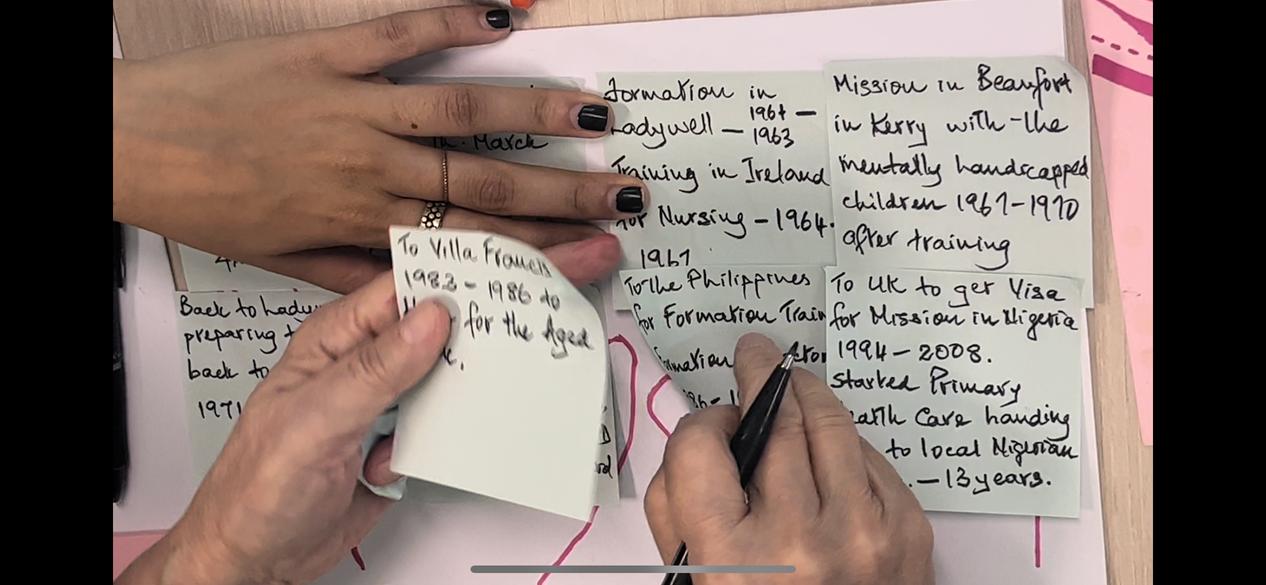 March
Formation in
Ladywell – 1961 –
1963
Training in Ireland
for Nursing – 1964.
1967
Mission in Beaufort
in Kerry with the
mentally handscapped
children 1967–1970
after training
Back to
preparing
back to
1971
To Villa Francis
1983 – 1986 to
for the Aged
To the Philippines
for Formation
To UK to get Visa
for Mission in Nigeria
1994 – 2008.
started Primary
Care handing
to local Nigerian
– 13 years.